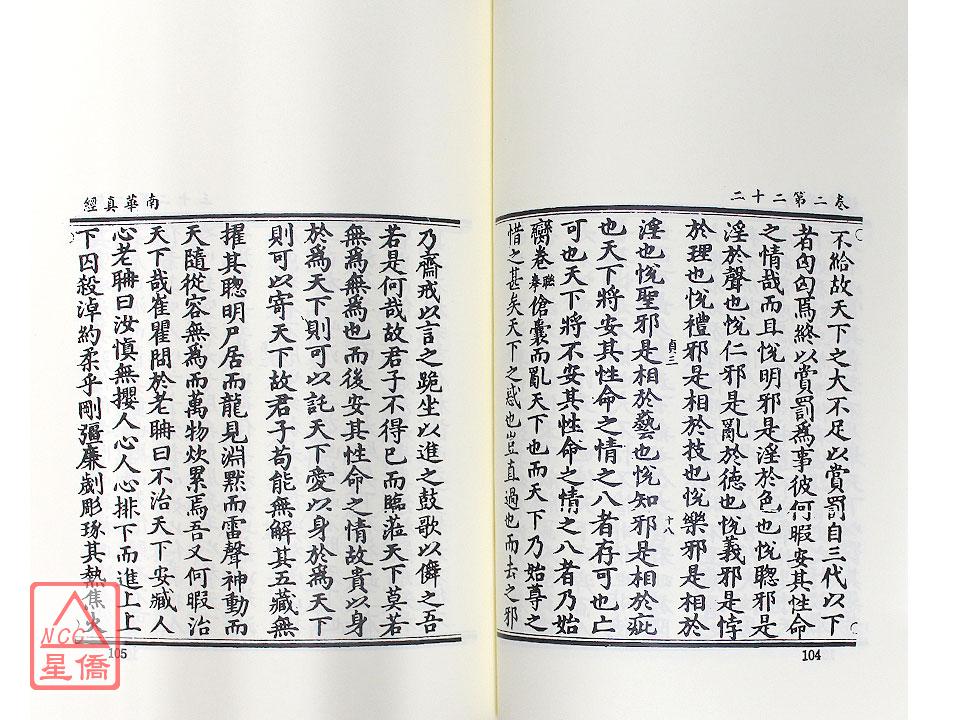 卷二第二十二
不給故天下之大不足以賞罰自三代以下
者匈匈焉終以賞罰為事彼何暇安其性命
之情哉而且悅明邪是淫於色也悅聰邪是
淫於聲也悅仁邪是亂於德也悅義邪是悖
於理也悅禮邪是相於技也悅樂邪是相於
貞三
十八
淫也悅聖邪是相於藝也悅知邪是相於疵
也天下將安其性命之情之八者存可也亡
可也天下將不安其性命之情之八者乃始
臠卷
傖囊而亂天下也而天下乃始尊之
惜之甚矣天下之惑也豈直過也而去之邪
104
南華真經
乃齋戒以言之跪坐以進之鼓歌以儛之吾
若是何哉故君子不得已而臨蒞天下莫若
無為無為也而後安其性命之情故貴以身
於為天下則可以託天下愛以身於為天下
則可以寄天下故君子苟能無解其五藏無
擢其聰明尸居而龍見淵默而雷聲神動而
天隨從容無為而萬物炊累焉吾又何暇治
天下哉崔瞿問於老聃曰不治天下安臧人
心老聃曰汝慎無攖人心人心排下而進上上
下囚殺淖約柔乎剛彊廉劌彫琢其熱焦火
105
NCC
星僑